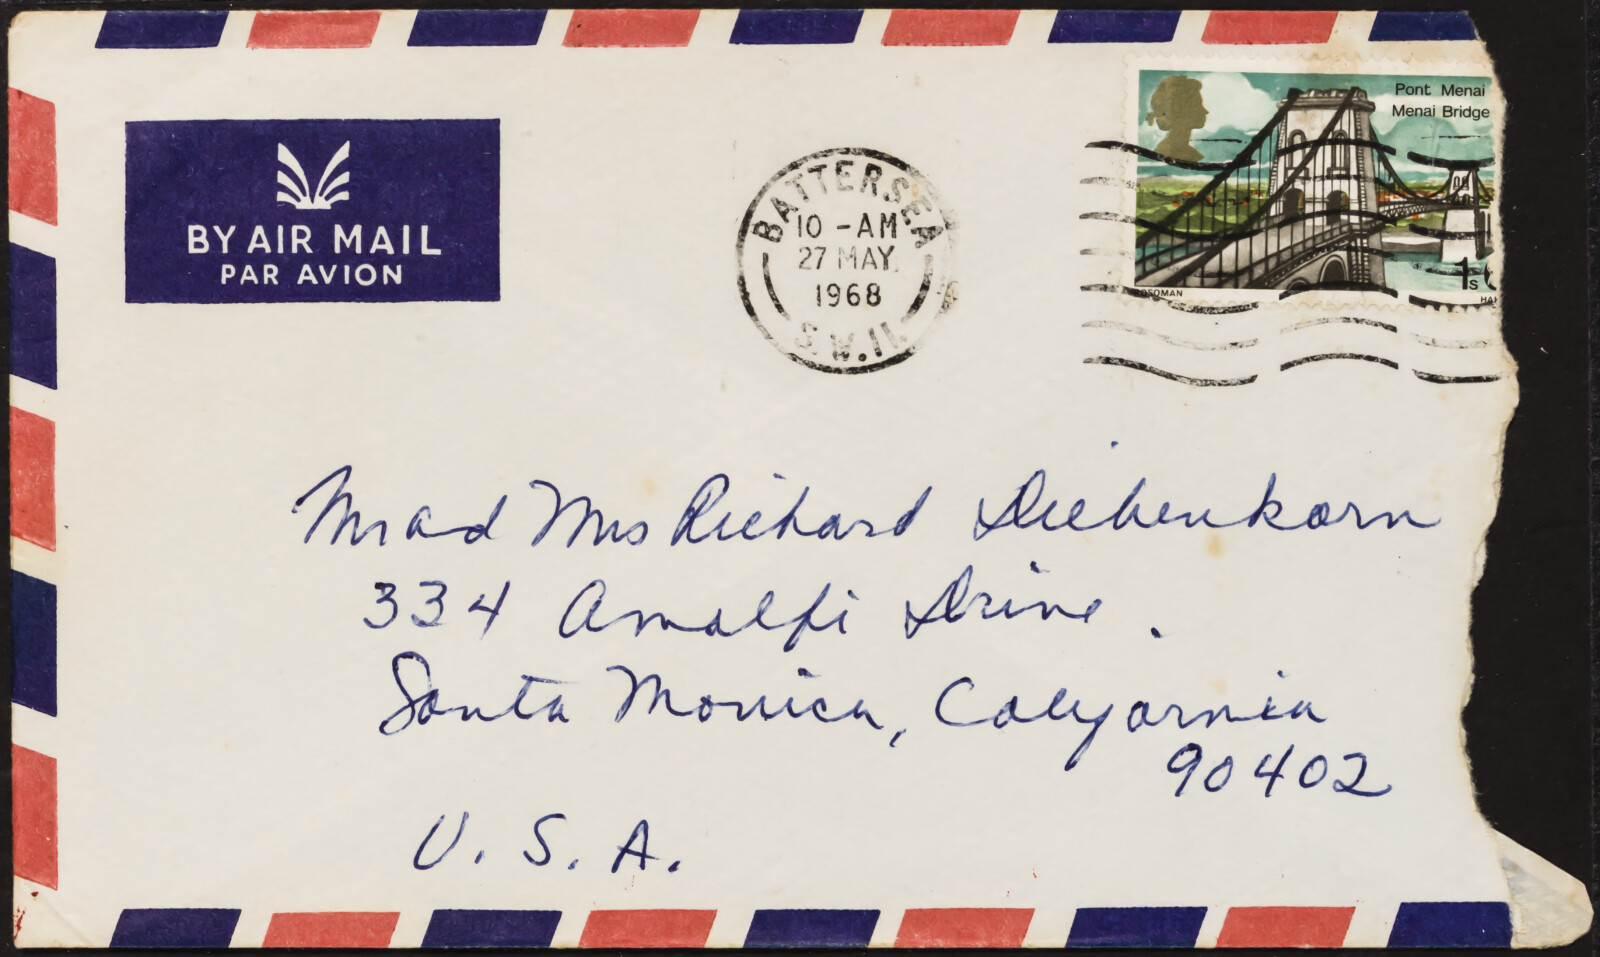 BY AIR MAIL
PAR AVION
BATTERSEA
10 - AM
27 MAY
1968
S.W.11.
Pont Menai
Menai Bridge
1s
OSOMAN
HA
Mr and Mrs Richard Diebenkorn
334 Amalfi Drive.
Santa Monica, California
90402
U. S. A.